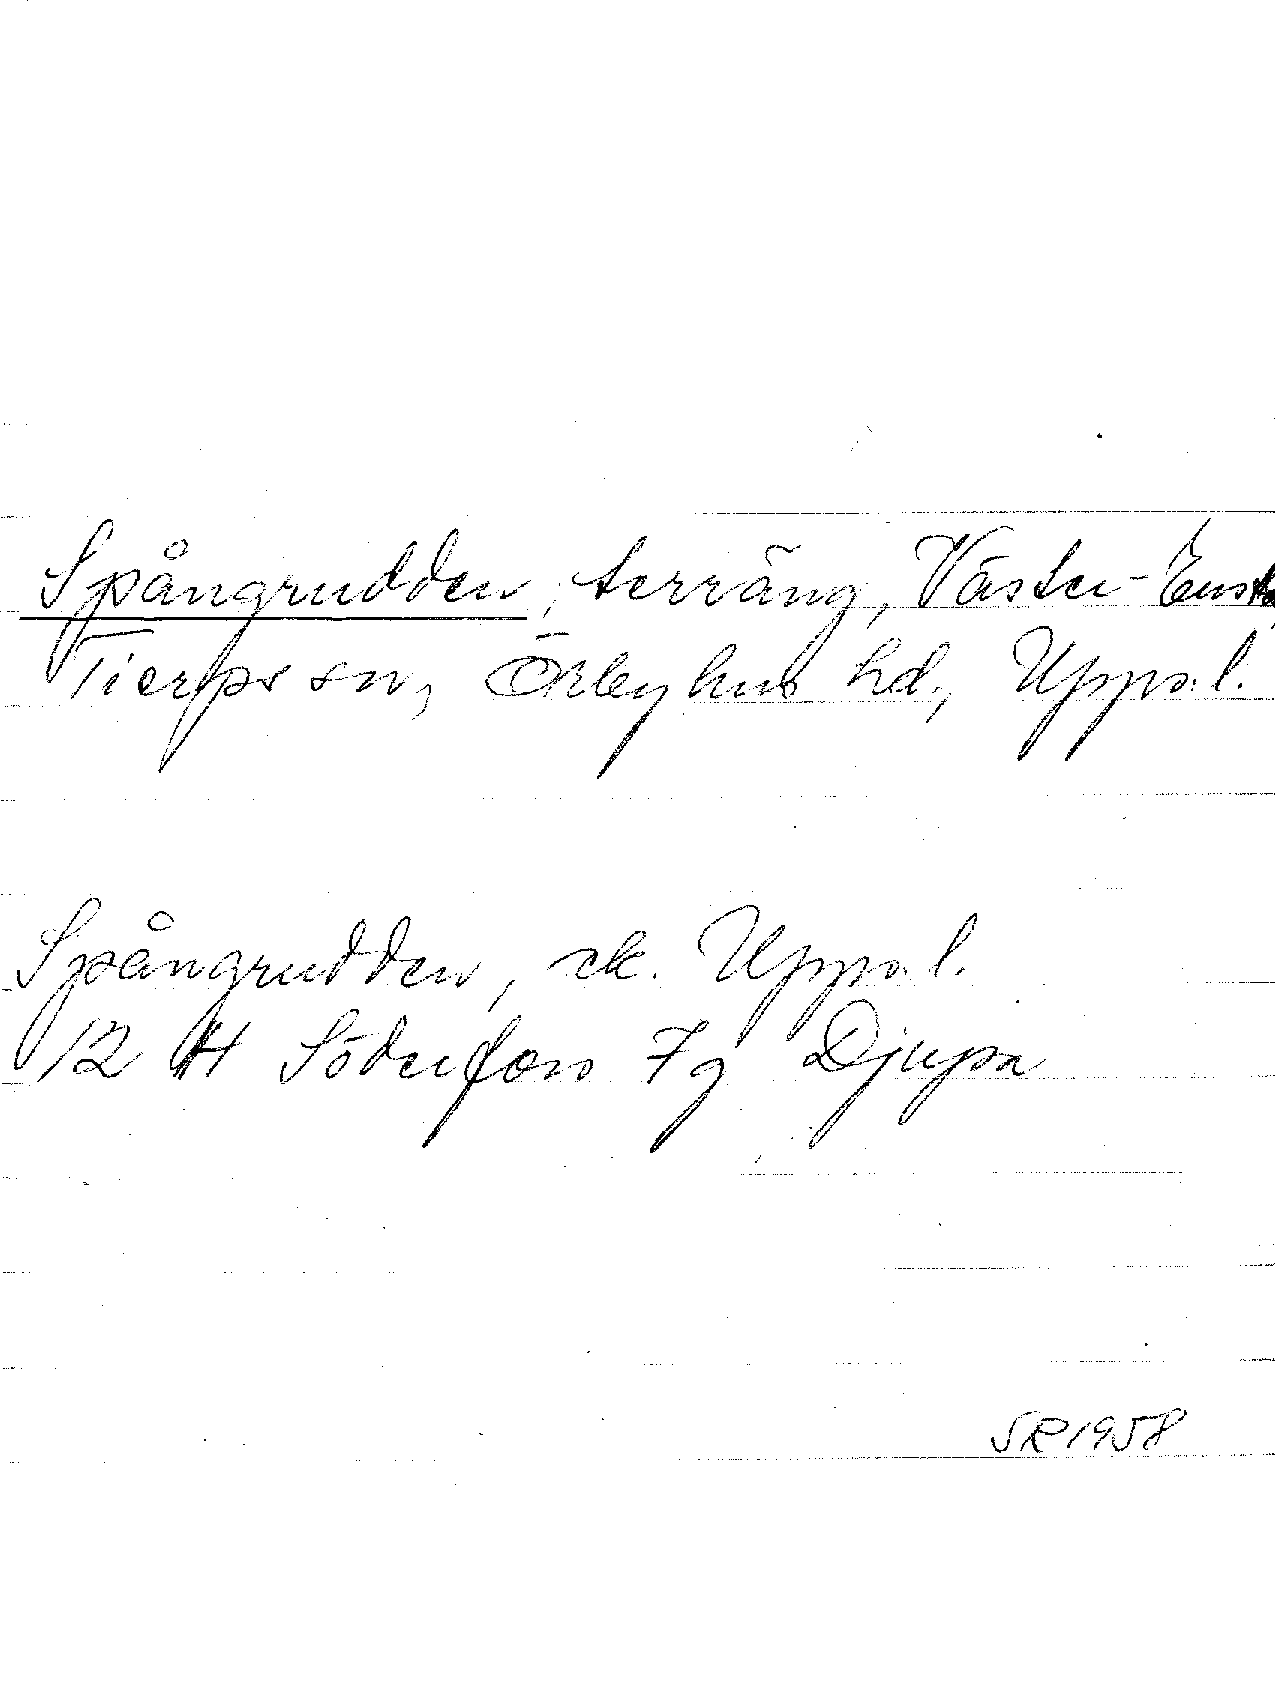 Spångrudden, terräng, Väster-Ensta,
Tierps sn, Örbyhus hd., Upps. l.
Spångrudden, ek. Upps. l.
12 H Söderfors 7g Djupa
SR 1958